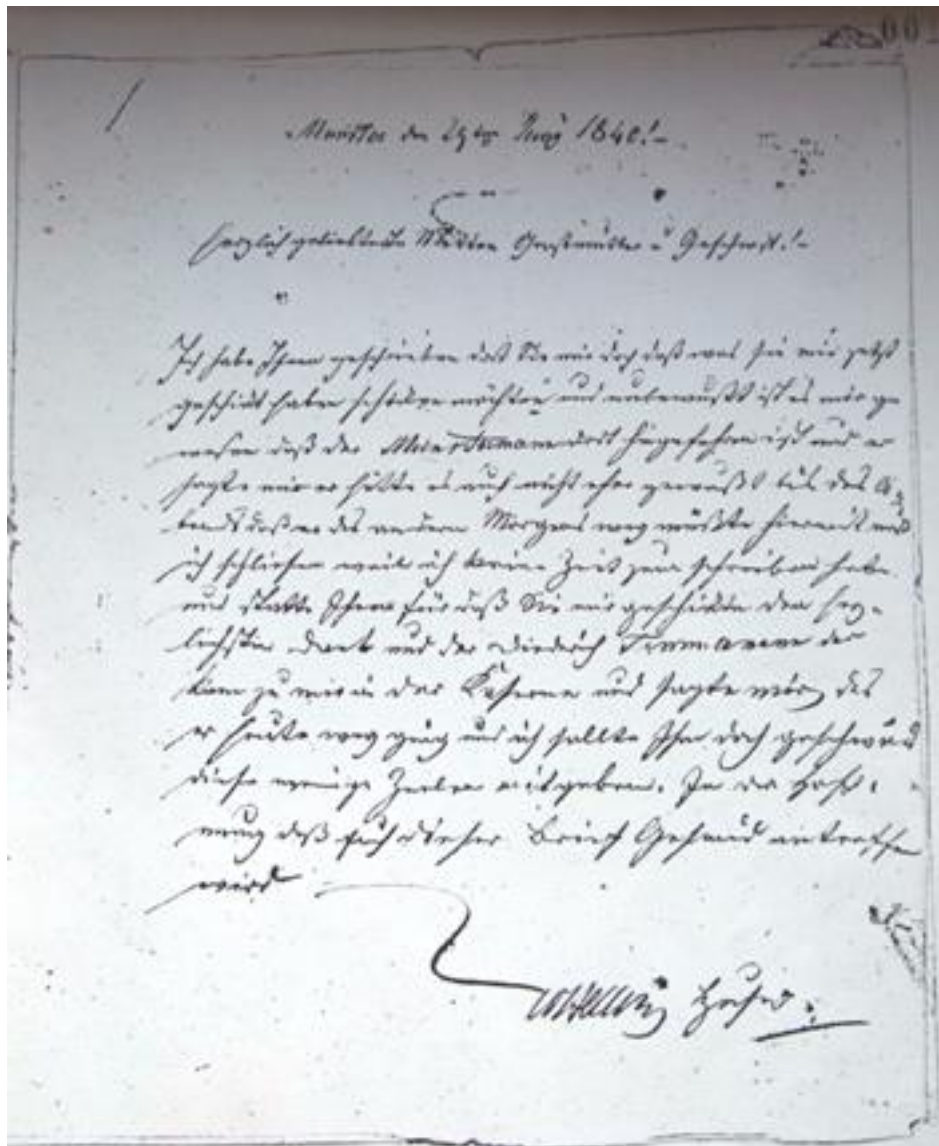 Münster den 29ten May 1840!-
Herzlich geliebteste Mutter Großmutter u Geschwist.!-
Ich habe Ihnen geschrieben daß Sie mir doch daß was sie mir jetzt
geschickt haben schicken möchten und unbewußt ist es mir ge
wesen daß der dort hingefahren ist und er
sagte mir er hätte es auch nicht eher gewußt bis des A-
bends daß er des andern Morgens weg müßte hiermit muß
ich schließen weil ich keine Zeit zum schreiben habe
und statte Ihnen für daß Sie mir geschickt den herz-
lichsten Dank und der Diederich der
kam zu mir in der Kaserne und sagte mir daß
er heute weg ging und ich sollte Ihm doch geschwind
diese wenige Zeilen mitgeben. In der Hoff-
nung daß Euch dieser Brief Gesund antreffen
wird